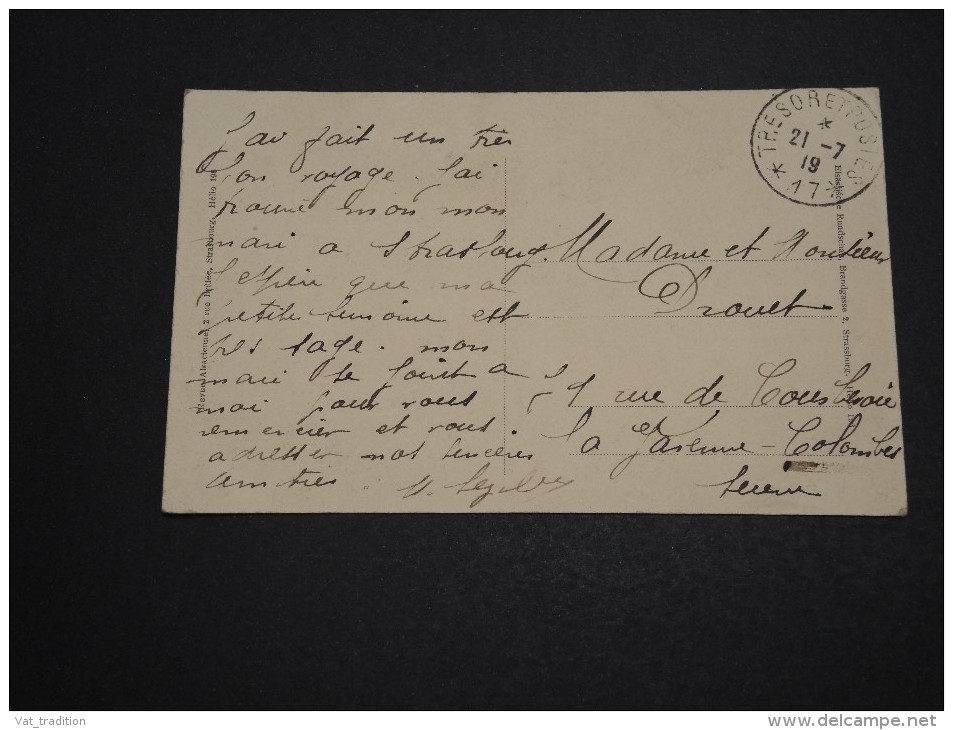 J'ai fait un très
bon voyage. J'ai
trouvé mon mon
mari a Strasbourg.
J'espère que ma
petite Simone est
très sage. mon
mari se joint a
moi pour vous
remercier et vous
adresser nos sincères
amitiés.
Madame et Monsieur
Drouet
51 rue de Courbevoie
La Garenne-Colombes
Seine
TRESOR ET POSTES
21 -7
19
* 17 *
Revue Alsacienne, 2 rue Brûlée, Strasbourg. Hélio
Elsässische Rundschau, Brandgasse 2, Strassburg. Hélio
Vat_tradition
http://www.delcampe.net